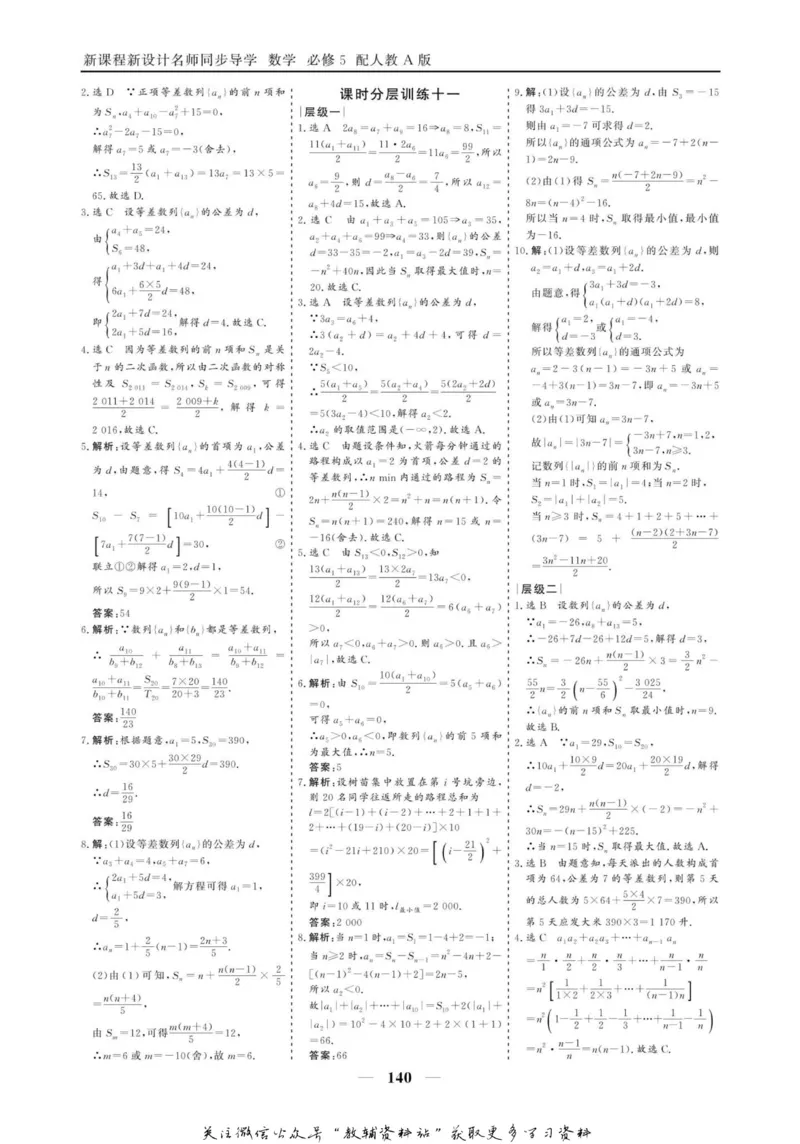 新课程新设计名师同步导学 数学 必修5 配人教A版
2.选D ∵正项等差数列{aₙ}的前n项和
为Sₙ,a₄+a₁₀-a₇²+15=0,
∴a₇²-2a₇-15=0,
解得a₇=5或a₇=-3(舍去),
∴S₁₃=13/2(a₁+a₁₃)=13a₇=13×5=
65.故选D.
3.选C 设等差数列{aₙ}的公差为d,
由{a₄+a₅=24, S₆=48,
得{a₁+3d+a₁+4d=24, 6a₁+(6×5)/2 d=48,
即{2a₁+7d=24, 2a₁+5d=16, 解得d=4.故选C.
4.选C 因为等差数列的前n项和Sₙ是关
于n的二次函数,所以由二次函数的对称
性及S₂₀₁₁=S₂₀₁₄,Sₖ=S₂₀₀₉,可得
(2 011+2 014)/2=(2 009+k)/2,解得k=
2 016,故选C.
5.解析:设等差数列{aₙ}的首项为a₁,公差
为d,由题意,得S₄=4a₁+4(4-1)/2 d=
14, ①
S₁₀-S₇=[10a₁+10(10-1)/2 d]-
[7a₁+7(7-1)/2 d]=30, ②
联立①②解得a₁=2,d=1,
所以S₉=9×2+9(9-1)/2×1=54.
答案:54
6.解析:∵数列{aₙ}和{bₙ}都是等差数列,
∴a₁₀/(b₉+b₁₂)+a₁₁/(b₈+b₁₃)=(a₁₀+a₁₁)/(b₉+b₁₂)=
(a₁₀+a₁₁)/(b₁₀+b₁₁)=S₂₀/T₂₀=(7×20)/(20+3)=140/23.
答案:140/23
7.解析:根据题意,a₁=5,S₂₀=390,
∴S₂₀=30×5+(30×29)/2 d=390.
∴d=16/29.
答案:16/29
8.解:(1)设等差数列{aₙ}的公差为d,
∵a₃+a₄=4,a₅+a₇=6,
∴{2a₁+5d=4, a₁+5d=3, 解方程可得a₁=1,
d=2/5,
∴aₙ=1+2/5(n-1)=(2n+3)/5.
(2)由(1)可知,Sₙ=n+n(n-1)/2×2/5
=n(n+4)/5,
由Sₘ=12,可得m(m+4)/5=12,
∴m=6或m=-10(舍),故m=6.
课时分层训练十一
|层级一|
1.选A 2a₈=a₇+a₉=16⇒a₈=8,S₁₁=
11(a₁+a₁₁)/2=11·2a₆/2=11a₆=99/2,所以
a₆=9/2,则d=(a₈-a₆)/2=7/4,所以a₁₂=
a₈+4d=15,故选A.
2.选C 由a₁+a₃+a₅=105⇒a₃=35,
a₂+a₄+a₆=99⇒a₄=33,则{aₙ}的公差
d=33-35=-2,a₁=a₃-2d=39,Sₙ=
-n²+40n,因此当Sₙ取得最大值时,n=
20.故选C.
3.选A 设等差数列{aₙ}的公差为d,
∵3a₃=a₆+4,
∴3(a₂+d)=a₂+4d+4,可得d=
2a₂-4.
∵S₅<10,
∴5(a₁+a₅)/2=5(a₂+a₄)/2=5(2a₂+2d)/2
=5(3a₂-4)<10,解得a₂<2.
∴a₂的取值范围是(-∞,2).故选A.
4.选C 由题设条件知,火箭每分钟通过的
路程构成以a₁=2为首项,公差d=2的
等差数列,∴n min内通过的路程为Sₙ=
2n+n(n-1)/2×2=n²+n=n(n+1).令
Sₙ=n(n+1)=240,解得n=15或n=
-16(舍去).故选C.
5.选C 由S₁₃<0,S₁₂>0,知
13(a₁+a₁₃)/2=13×2a₇/2=13a₇<0,
12(a₁+a₁₂)/2=12(a₆+a₇)/2=6(a₆+a₇)
>0,
所以a₇<0,a₆+a₇>0.则a₆>0.且a₆>
|a₇|,故选C.
6.解析:由S₁₀=10(a₁+a₁₀)/2=5(a₅+a₆)
=0,
可得a₅+a₆=0,
∴a₅>0,a₆<0,即数列{aₙ}的前5项和
为最大值,∴n=5.
答案:5
7.解析:设树苗集中放置在第i号坑旁边,
则20名同学往返所走的路程总和为
l=2[(i-1)+(i-2)+…+2+1+1+
2+…+(19-i)+(20-i)]×10
=(i²-21i+210)×20=[(i-21/2)²+
399/4]×20,
即i=10或11时,l最小值=2 000.
答案:2 000
8.解析:当n=1时,a₁=S₁=1-4+2=-1;
当n≥2时,aₙ=Sₙ-Sₙ₋₁=n²-4n+2-
[(n-1)²-4(n-1)+2]=2n-5,
所以a₂<0.
故|a₁|+|a₂|+…+|a₁₀|=S₁₀+2(|a₁|+
|a₂|)=10²-4×10+2+2×(1+1)
=66.
答案:66
9.解:(1)设{aₙ}的公差为d,由S₃=-15
得3a₁+3d=-15.
则由a₁=-7可求得d=2.
所以{aₙ}的通项公式为aₙ=-7+2(n-
1)=2n-9.
(2)由(1)得Sₙ=n(-7+2n-9)/2=n²-
8n=(n-4)²-16.
所以当n=4时,Sₙ取得最小值,最小值
为-16.
10.解:(1)设等差数列{aₙ}的公差为d,则
a₂=a₁+d,a₃=a₁+2d.
由题意,得{3a₁+3d=-3, a₁(a₁+d)(a₁+2d)=8,
解得{a₁=2, d=-3 或{a₁=-4, d=3.
所以等差数列{aₙ}的通项公式为
aₙ=2-3(n-1)=-3n+5或aₙ=
-4+3(n-1)=3n-7,即aₙ=-3n+5
或aₙ=3n-7.
(2)由(1)可知aₙ=3n-7,
故|aₙ|=|3n-7|={-3n+7,n=1,2, 3n-7,n≥3.
记数列{|aₙ|}的前n项和为Sₙ.
当n=1时,S₁=|a₁|=4;当n=2时,
S₂=|a₁|+|a₂|=5.
当n≥3时,Sₙ=4+1+2+5+…+
(3n-7)=5+(n-2)(2+3n-7)/2
=(3n²-11n+20)/2.
|层级二|
1.选B 设数列{aₙ}的公差为d,
∵a₁=-26,a₈+a₁₃=5,
∴-26+7d-26+12d=5,解得d=3,
∴Sₙ=-26n+n(n-1)/2×3=3/2 n²-
55/2 n=3/2(n-55/6)²-3 025/24,
∴{aₙ}的前n项和Sₙ取最小值时,n=9.
故选B.
2.选A ∵a₁=29,S₁₀=S₂₀,
∴10a₁+(10×9)/2 d=20a₁+(20×19)/2 d,解得
d=-2,
∴Sₙ=29n+n(n-1)/2×(-2)=-n²+
30n=-(n-15)²+225.
∴当n=15时,Sₙ取得最大值.故选A.
3.选B 由题意知,每天派出的人数构成首
项为64,公差为7的等差数列,则第5天
的总人数为5×64+(5×4)/2×7=390,所以
第5天应发大米390×3=1 170升.
4.选C a₁a₂+a₂a₃+…+aₙ₋₁aₙ
=n/1·n/2+n/2·n/3+…+n/(n-1)·n/n
=n²[1/(1×2)+1/(2×3)+…+1/((n-1)n)]
=n²(1-1/2+1/2-1/3+…+1/(n-1)-1/n)
=n²·(n-1)/n=n(n-1).故选C.
— 140 —
关注微信公众号“教辅资料站”获取更多学习资料